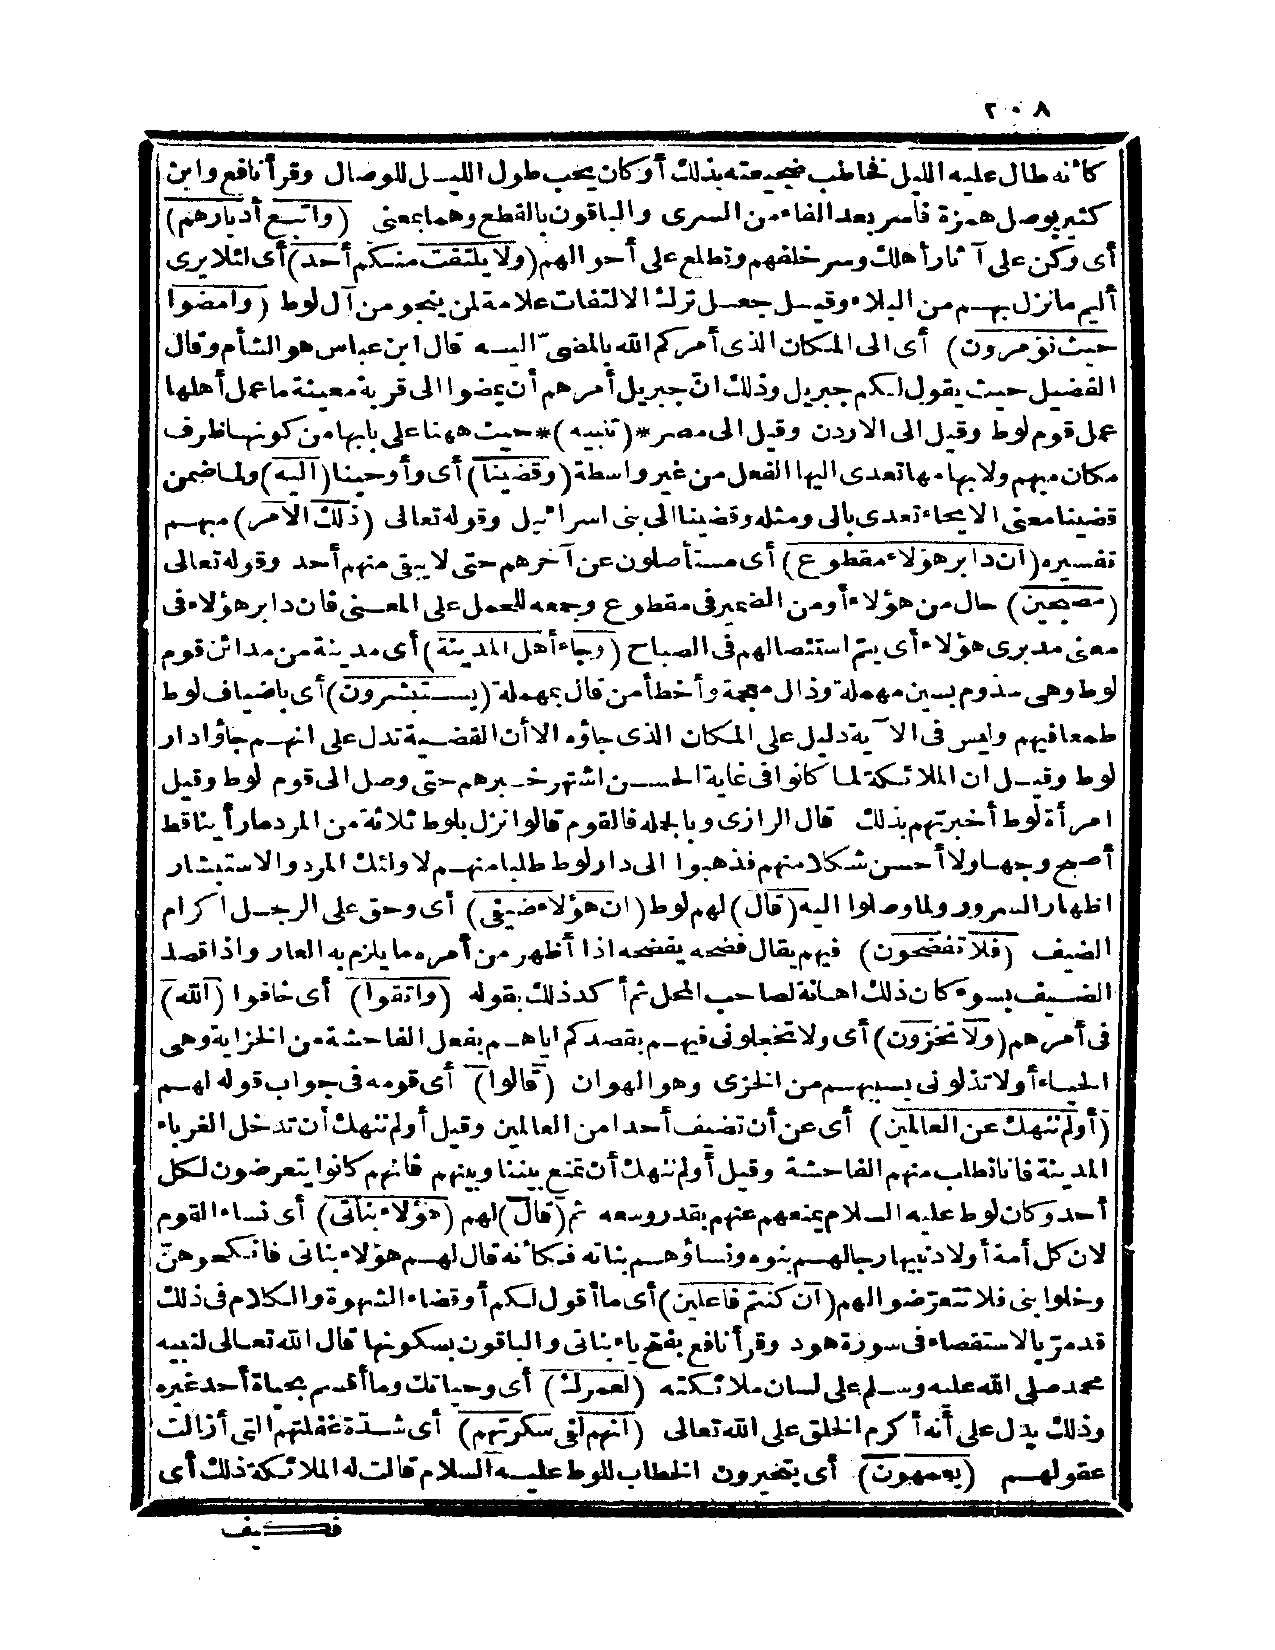 ٢٠٨
كأنه طال عليه الليل فخاطب ضجيعته بذلك أو كان يحب طول الليل للوصال وقرأ نافع وابن
كثير بوصل همزة فأسر بعد الفاء من السرى والباقون بالقطع وهما بمعنى (واتبع أدبارهم)
أى وكن على آثار أهلك وسر خلفهم وتطلع على أحوالهم (ولا يلتفت منكم أحد) أى لئلا يرى
أليم ما نزل بهم من البلاء وقيل جعل ترك الالتفات علامة لمن ينجو من آل لوط (وامضوا
حيث تؤمرون) أى الى المكان الذى أمركم الله بالمضىّ اليه قال ابن عباس هو الشأم وقال
الفضيل حيث يقول لكم جبريل وذلك انّ جبريل أمرهم أن يمضوا الى قرية معينة ما عمل أهلها
عمل قوم لوط وقيل الى الاردن وقيل الى مصر *(تنبيه)* حيث ههنا على بابها من كونها ظرف
مكان مبهم ولابهامها تعدى اليها الفعل من غير واسطة (وقضينا) أى وأوحينا (اليه) ولما ضمن
قضينا معنى الايحاء تعدى بالى ومثله وقضينا الى بنى اسرائيل وقوله تعالى (ذلك الامر) مبهم
تفسيره (ان دابر هؤلاء مقطوع) أى مستأصلون عن آخرهم حتى لا يبقى منهم أحد وقوله تعالى
(مصبحين) حال من هؤلاء أو من الضمير فى مقطوع وجمعه للحمل على المعنى فان دابر هؤلاء فى
معنى مدبرى هؤلاء أى يتم استئصالهم فى الصباح (وجاء أهل المدينة) أى مدينة من مدائن قوم
لوط وهى سذوم بسين مهملة وذال معجمة وأخطأ من قال بمهملة (يستبشرون) أى باضياف لوط
طمعا فيهم وليس فى الآية دليل على المكان الذى جاؤه الا أن القضية تدل على انهم جاؤا دار
لوط وقيل ان الملائكة لما كانوا فى غاية الحسن اشتهر خبرهم حتى وصل الى قوم لوط وقيل
امرأة لوط أخبرتهم بذلك قال الرازى وبالجملة فالقوم قالوا نزل بلوط ثلاثة من المرد ما رأينا قط
أصبح وجها ولا أحسن شكلا منهم فذهبوا الى دار لوط طلبا منهم لاولئك المرد والاستبشار
اظهار السرور ولما وصلوا اليه (قال) لهم لوط (ان هؤلاء ضيفى) أى وحق على الرجل اكرام
الضيف (فلا تفضحون) فيهم يقال فضحه يفضحه اذا أظهر من أمره ما يلزم به العار واذا قصد
الضيف بسوء كان ذلك اهانة لصاحب المحل ثم أكد ذلك بقوله (واتقوا) أى خافوا (الله)
فى أمرهم (ولا تخزون) أى ولا تخجلونى فيهم بقصدكم اياهم بفعل الفاحشة من الخزاية وهى
الحياء أو لا تذلونى بسببهم من الخزى وهو الهوان (قالوا) أى قومه فى جواب قوله لهم
(أولم ننهك عن العالمين) أى عن أن تضيف أحدا من العالمين وقيل أولم ننهك أن تدخل الغرباء
المدينة فانا نطلب منهم الفاحشة وقيل أولم ننهك أن تمنع بيننا وبينهم فانهم كانوا يتعرضون لكل
أحد وكان لوط عليه السلام يمنعهم عنهم بقدر وسعه ثم (قال) لهم (هؤلاء بناتى) أى نساء القوم
لان كل أمة أولاد نبيها رجالهم بنوه ونساؤهم بناته فكأنه قال لهم هؤلاء بناتى فانكحوهنّ
وخلوا بنى فلا تتعرّضوا لهم (ان كنتم فاعلين) أى ما أقول لكم أو قضاء الشهوة والكلام فى ذلك
قد مرّ بالاستقصاء فى سورة هود وقرأ نافع بفتح ياء بناتى والباقون بسكونها قال الله تعالى لنبيه
محمد صلى الله عليه وسلم على لسان ملائكته (لعمرك) أى وحياتك وما أقسم بحياة أحد غيره
وذلك يدل على أنه أكرم الخلق على الله تعالى (انهم لفى سكرتهم) أى شدّة غفلتهم التى أزالت
عقولهم (يعمهون) أى يتحيرون الخطاب للوط عليه السلام قالت له الملائكة ذلك أى
فكيف